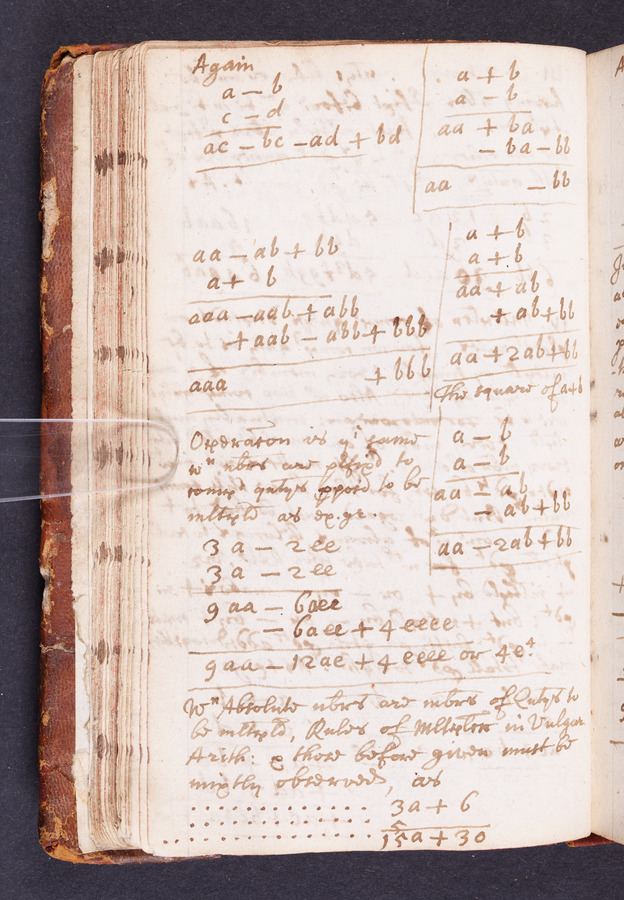 Again
a - b
c - d
ac - bc - ad + bd
aa - ab + bb
a + b
aaa - aab + abb
+ aab - abb + bbb
aaa + bbb
Operation is yᵉ same
wⁿ nbrs are pfixd to
qntys ppos'd to be
mltipld as ex. gr.
3a - 2ee
3a - 2ee
9aa - 6aee
- 6aee + 4eeee
9aa - 12ae + 4eeee or 4e⁴
Wⁿ Absolute nbrs are mbrs of Qntys to
be mltipld, Rules of Mltiplcn in Vulgar
Arith: & those before given must be
mixtly observed, as
. . . . . . . . . . . . . . . . 3a + 6
. . . . . . . . . . . . . . . . 5
. . . . . . . . . . . . . . . . 15a + 30
a + b
a - b
aa + ba
- ba - bb
aa - bb
a + b
a + b
aa + ab
+ ab + bb
aa + 2ab + bb
The square of a+b
a - b
a - b
aa - ab
- ab + bb
aa - 2ab + bb